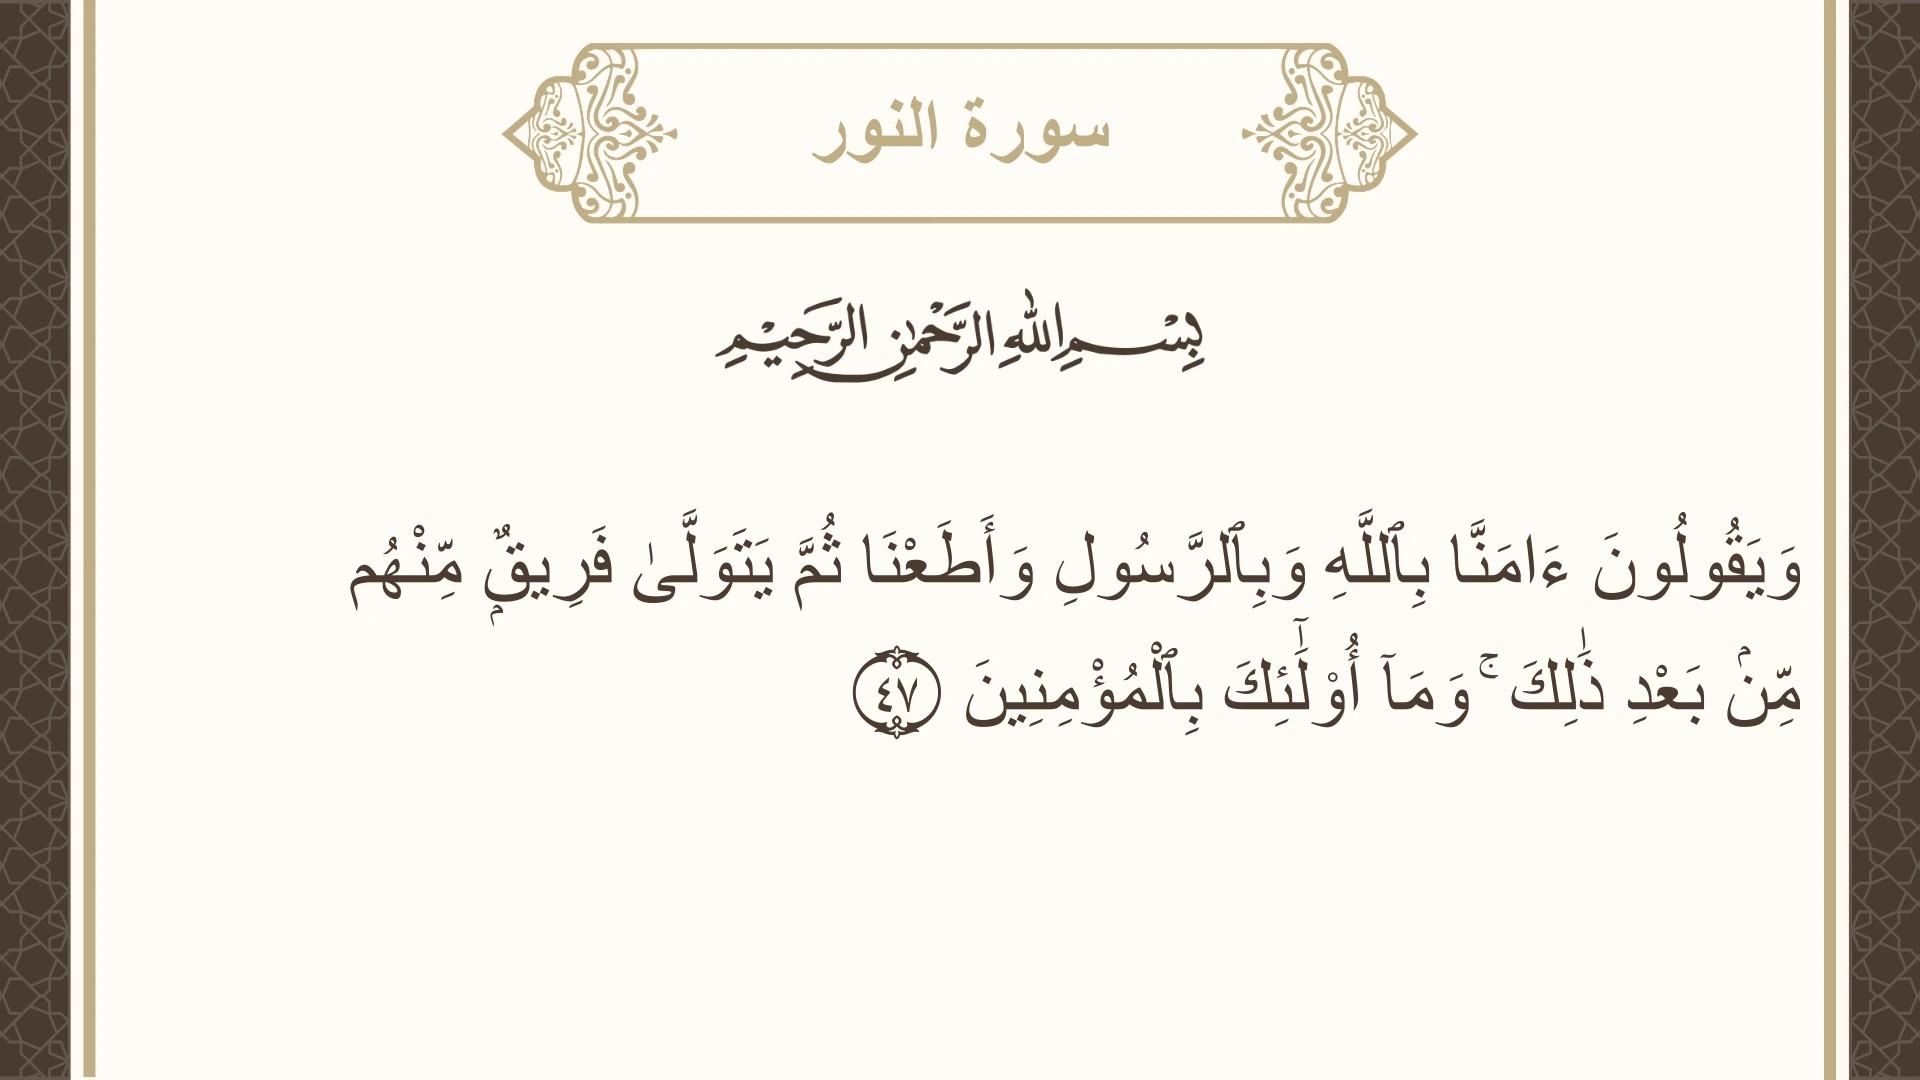 سورة النور
بِسْمِ اللهِ الرَّحْمٰنِ الرَّحِيْمِ
وَيَقُولُونَ ءَامَنَّا بِٱللَّهِ وَبِٱلرَّسُولِ وَأَطَعْنَا ثُمَّ يَتَوَلَّىٰ فَرِيقٌۭ مِّنْهُم
مِّنۢ بَعْدِ ذَٰلِكَ ۚ وَمَآ أُو۟لَٰٓئِكَ بِٱلْمُؤْمِنِينَ ٤٧